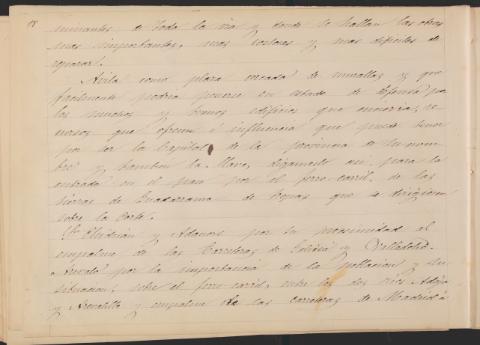 minantes de toda la via y donde se hallan las obras
mas importantes, mas costosas y mas dificiles de
reparar.
Avila como plaza cercada de murallas, y que
facilmente podria ponerse en estado de defensa por
los muchos y buenos edificios que encierra, re
cursos que ofrece é influencia que puede tener
por ser la Capital de la provincia de su nom
bre y tambien la llave, digamoslo asi para la
entrada en el pais por el ferro-carril de las
tierras de Guadarrama de tropas que se dirigiesen
sobre la Corte.
Sn. Chidrian y Adanero por su proximidad al
empalme de las Carreteras de Galicia y Valladolid.
Arevalo por la importancia de la poblacion y su
situacion, sobre el ferro-carril, entre los dos rios Adaja
y Arevalillo y empalme de las carreteras de Madrid á